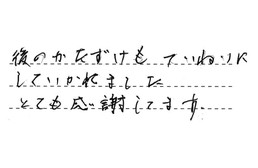 後のかたずけも ていねいに
していかれました
とても感謝してます。